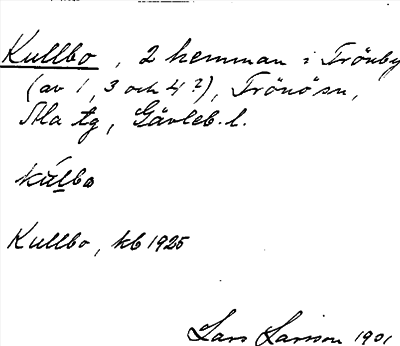 Kullbo, 2 hemman i Trönby
(av 1, 3 och 4?), Trönö sn,
Ala tg, Gävleb. l.
kúlba
Kullbo, kb 1925
Lars Larsson 1901